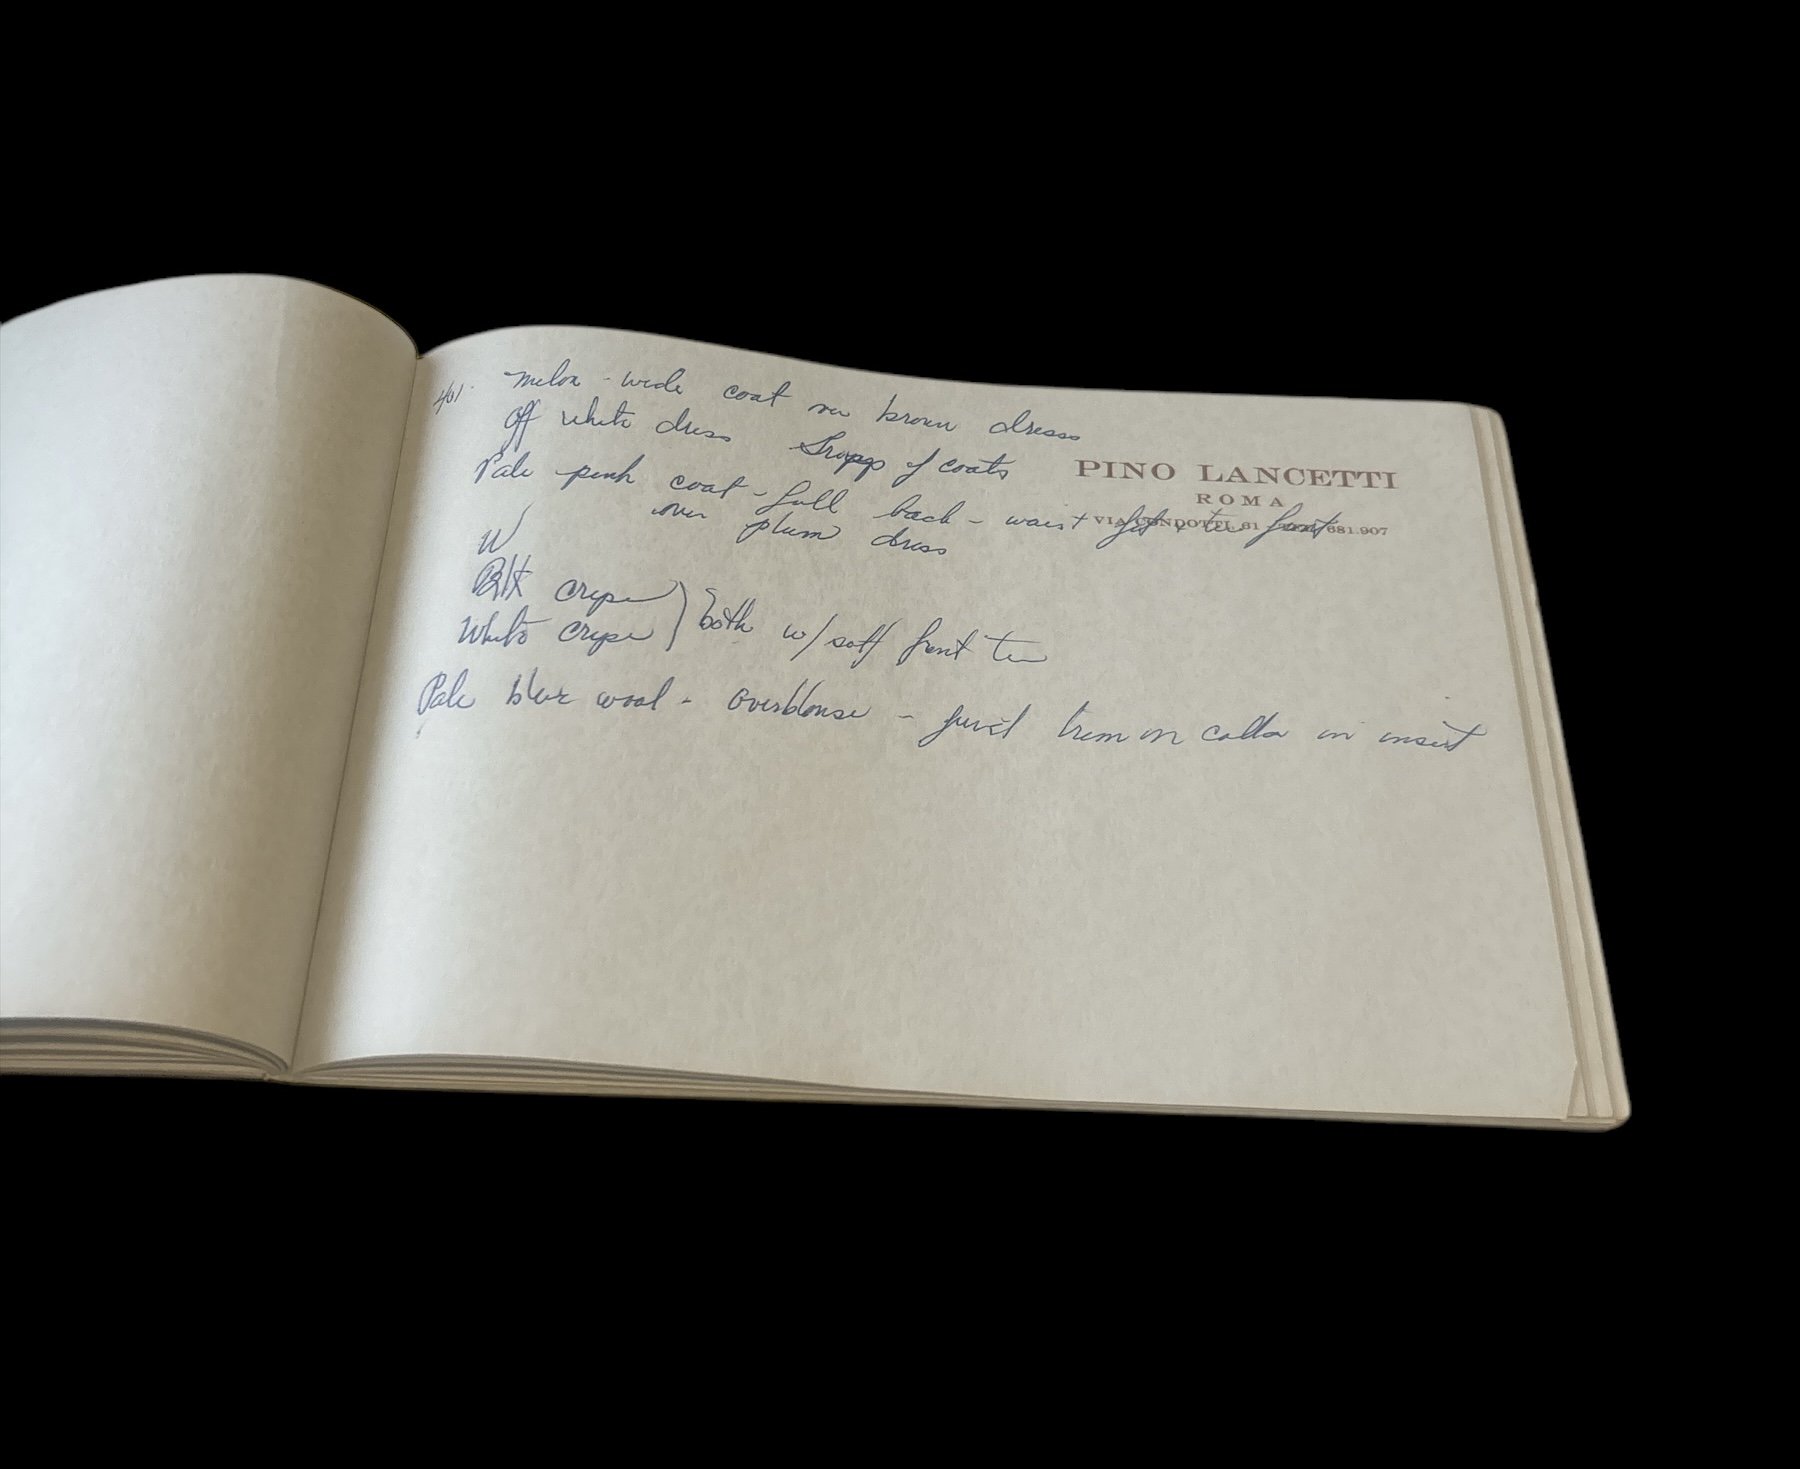 461. melon - wide coat over brown dress
Off white dress Group of coats
PINO LANCETTI
ROMA
VIA CONDOTTI, 61 681.907
Pale pink coat - full back - waist tie front
over plum dress
W
Blk crepe
White crepe } both w/ soft front tie
Pale blue wool - overblouse - jewel trim on collar in insert